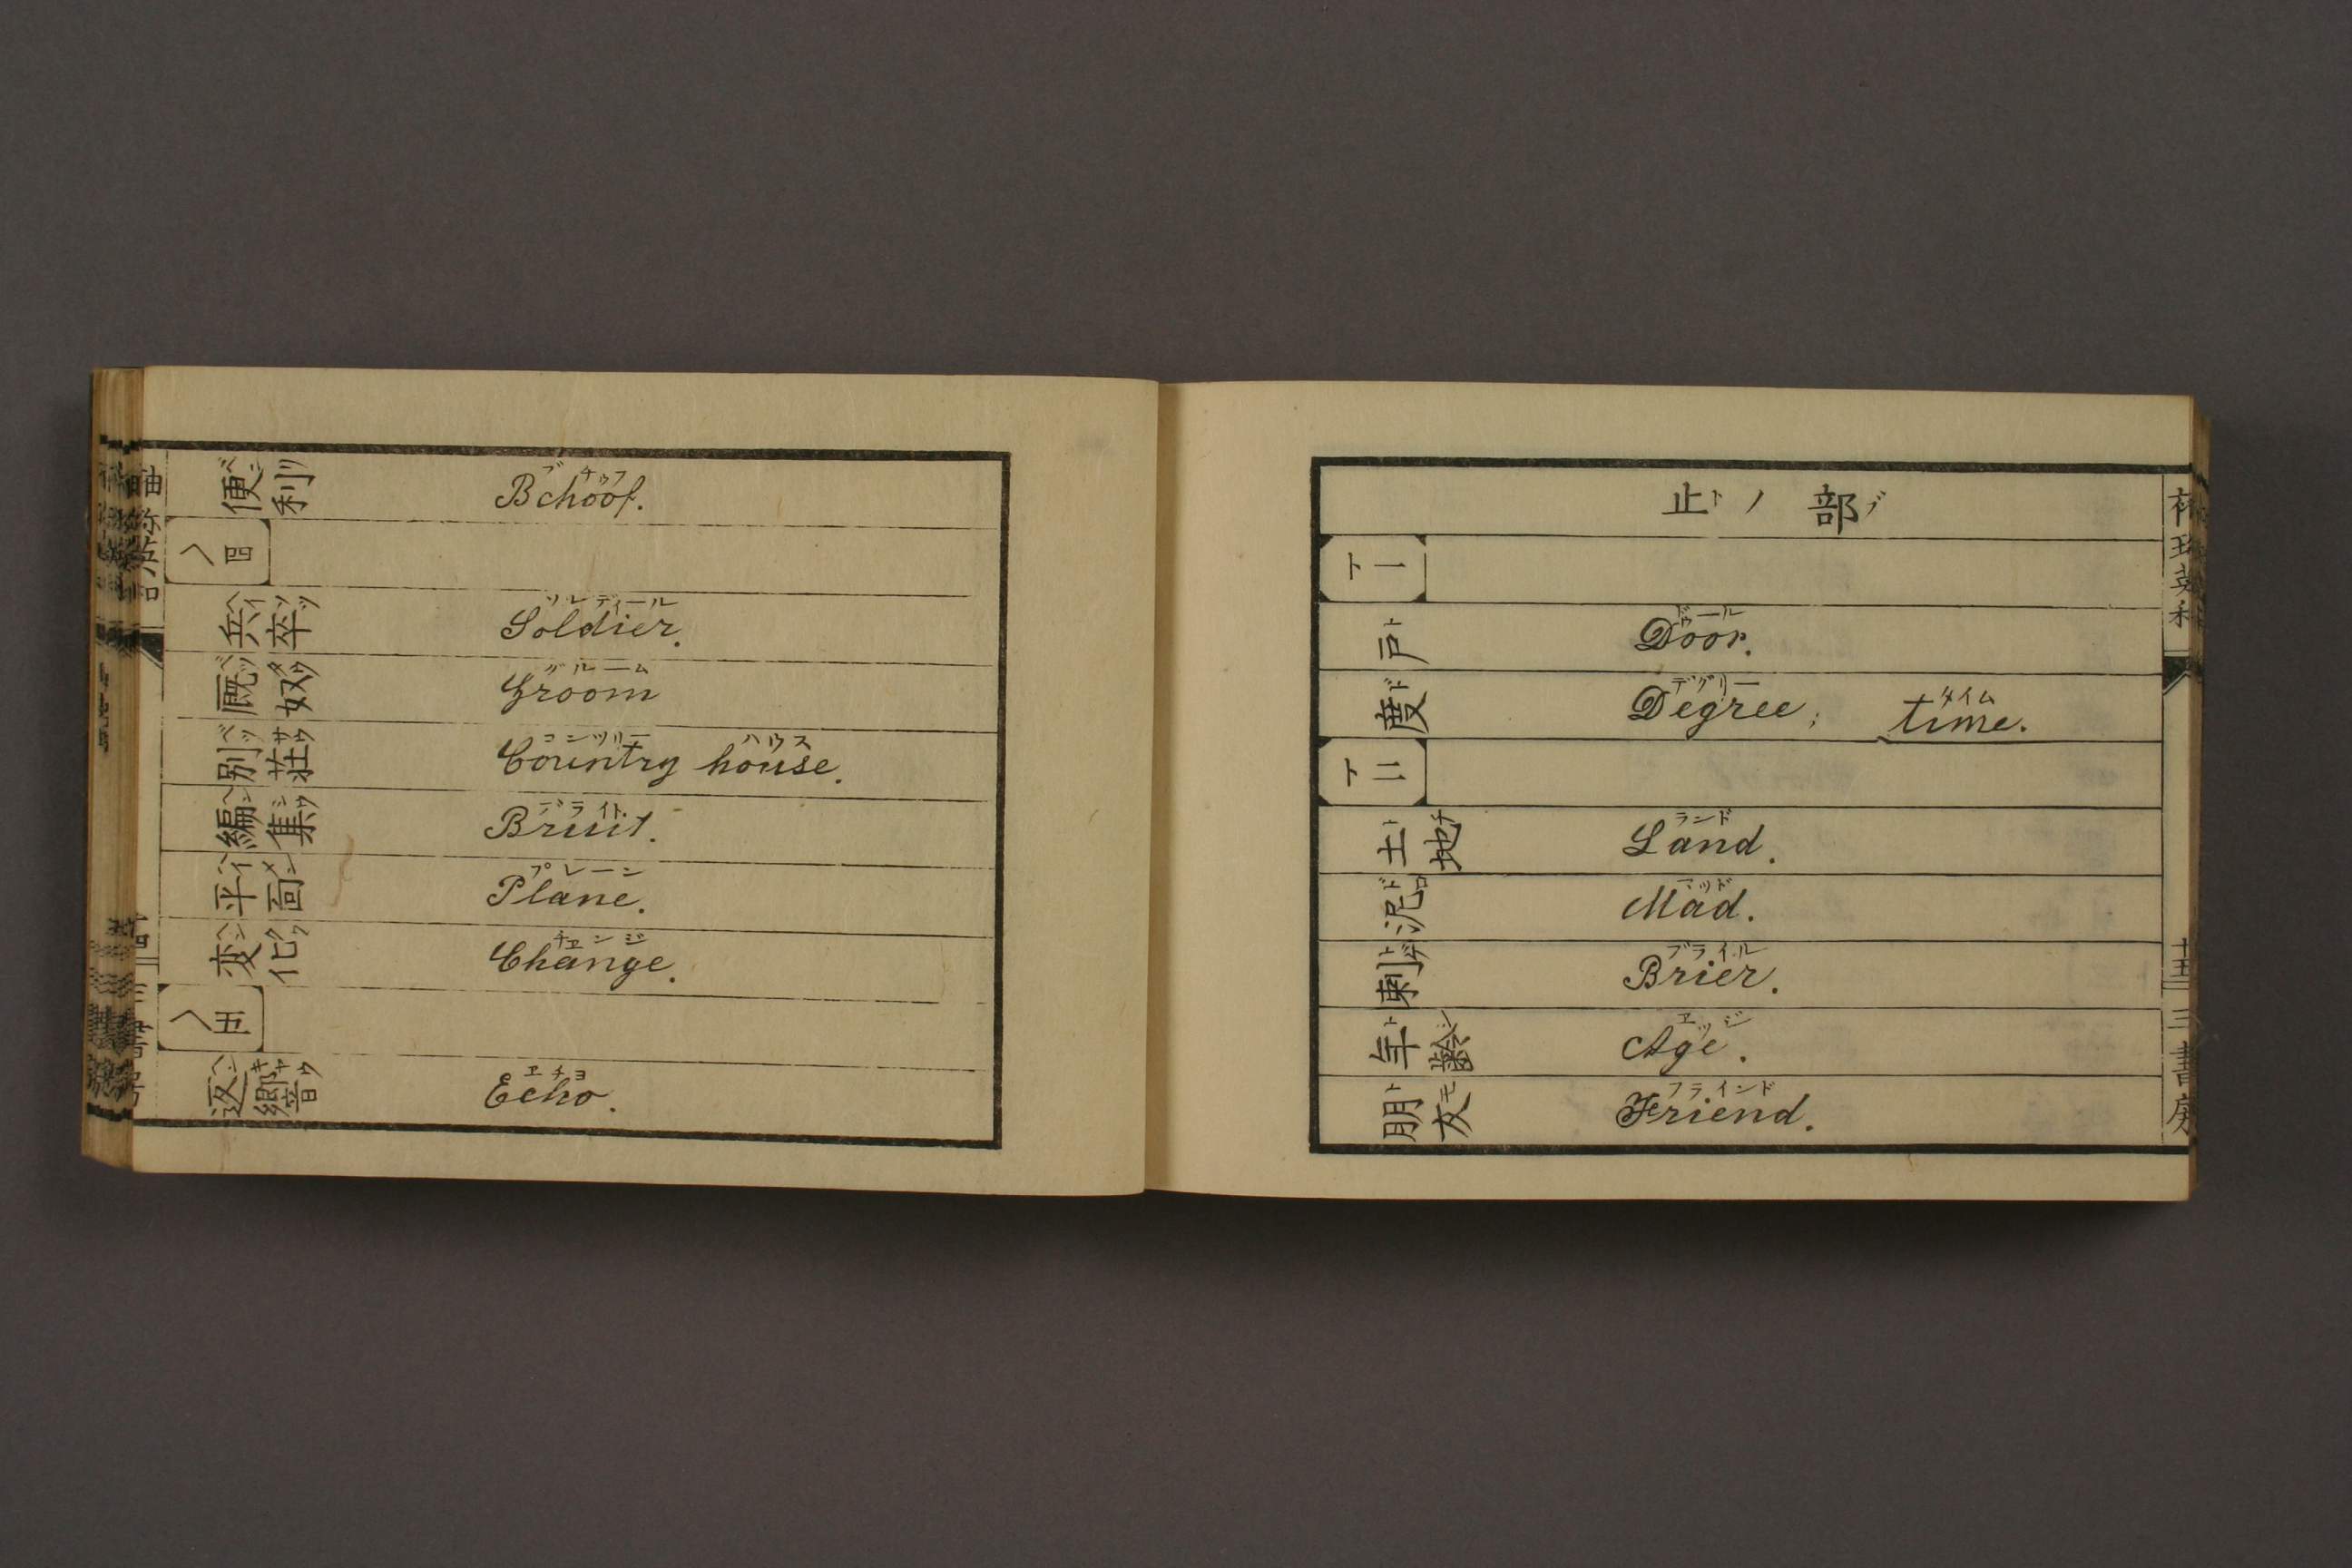 便利 Bchoof. ブチウフ
ヘ四
兵卒 Soldier. ソルディール
厩奴 Groom グルーム
別荘 Country house. コンツリー ハウス
編集 Bruit. ブライト
平面 Plane. プレーン
変化 Change. チェンジ
ヘ五
返響 Echo. エチョ
止ト ノ 部ブ
ト一
戸ト Door. ドール
度ド Degree; デグリー time. タイム
ト二
土ト地チ Land. ランド
泥ドロ Mad. マッド
刺トゲ Brier. ブライル
年ト齢シ Age. エッジ
朋ト友モ Friend. フラインド
十五
三書房